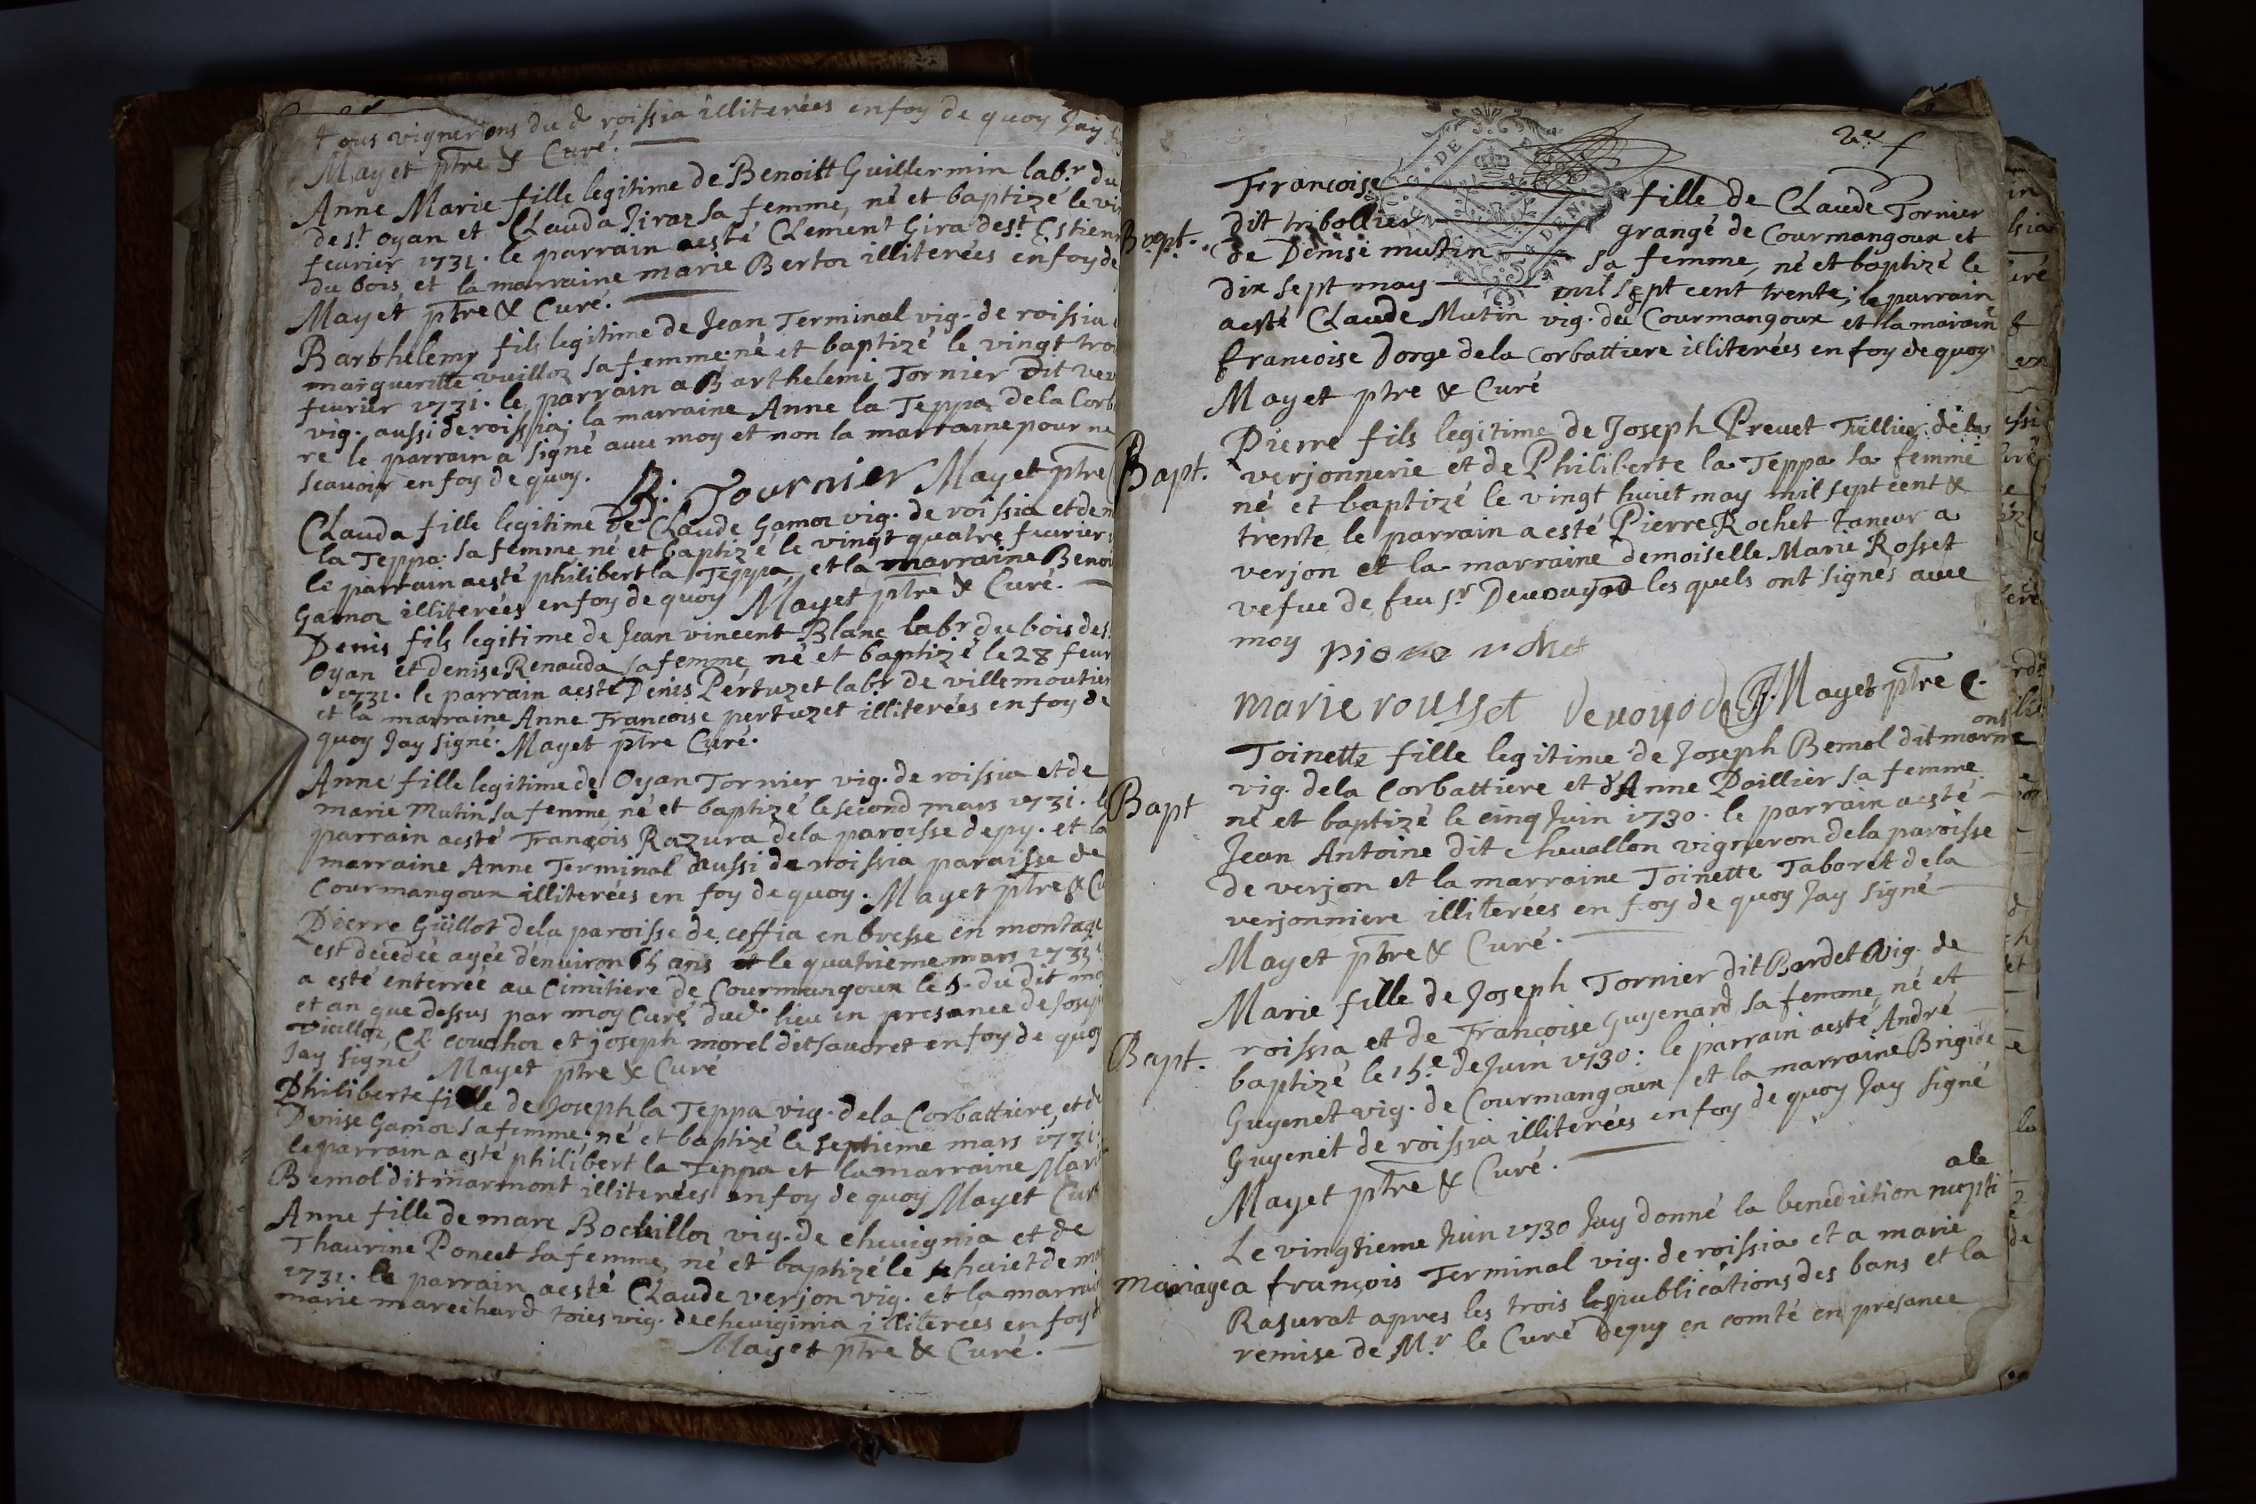 tous vignerons du d roissia illiterées en foy de quoy Jay
Mayet ptre & Curé.
Anne Marie fille legitime de Benoitt Guillermin labr. du
de st. oyan et Clauda Jiraz sa femme, né et baptizé le
feurier 1731. le parrain a esté Clement Gira de st. Estien
du bois et la marraine marie Berton illiterées en foy de
Mayet ptre & Curé.
Barthelemy fils legitime de Jean Terminal vig. de roissia
marguerite vuilloz sa femme né et baptizé le vingt tro
feurier 1731. le parrain a Barthelemi Tornier Dit
vig. aussi de roissia, la marraine Anne la Teppa de la Corb
re le parrain a signé auec moy et non la marraine pour ne
scauoir en foy de quoy.
B: Tournier Mayet ptre
Clauda fille legitime de Claude Gamoz vig. de roissia et de
la Teppa sa femme né et baptizé le vingt quatre feurier
le parrain a esté philibert la Teppa, et la marraine Benoi
Gamoz illiterées en foy de quoy Mayet ptre & Curé.
Denis fils legitime de Jean vincent Blanc labr du bois de st
Oyan et denise Renauda sa femme né et baptizé le 28 feur
1731. le parrain a esté Denis Pertuzet labr de villemoutier
et la marraine Anne Francoise pertuzet illiterées en foy de
quoy Jay signé. Mayet ptre Curé.
Anne fille legitime de Oyan Tornier vig. de roissia et de
marie Mutin sa femme né et baptizé le second mars 1731. le
parrain a esté François Razura de la paroisse depy. et la
marraine Anne Terminal aussi de roissia paroisse de
Courmangoux illiterées en foy de quoy. Mayet ptre & Cu
Pierre Guillot de la paroisse de ceffia en bresse en montagn
est decedée agée denuiron 65 ans et le quatrieme mars 1731
a esté enterrée au Cimitiere de Courmangoux le 5. du dit mo
et an que dessus par moy Curé dud. lieu en presance de Josep
Vuilloz, Cl. couchoz et joseph morel det sauoret en foy de quoy
Jay signé Mayet ptre & Curé
Philiberte fille de Joseph la Teppa vig. de la Corbattiere, et de
Denise Gamoz sa femme né et baptizé le septieme mars 1731.
le parrain a esté philibert la Teppa et la marraine Mari
Bemol dit marmont illiterées en foy de quoy Mayet Cur
Anne fille de marc Bochilloz vig. de cheuignia et de
Thaurine Poncet sa femme, né et baptizé le huiet de m
1731. le parrain a esté Claude verjon vig. et la marra
marie marechard vig. de cheuignia illiterées en foy
Mayet ptre & Curé.
2e f
Françoise fille de Claude Tornier
dit tribollier grangé de Courmangoux et
Bapt. de Denise mutin sa femme, né et baptizé le
dix sept may mil sept cent trente; le parrain
a esté Claude Mutin vig. du Courmangoux et la marain
francoise Dorge de la Corbattiere illiterées en foy de quoy
Mayet ptre & Curé
Pierre fils legitime de Joseph Preuet Tuillier de la
Bapt. verjonnerie et de Philiberte la Teppa sa femme
né et baptizé le vingt huiet may mil sept cent &
trente le parrain a esté Pierre Rochet taneur a
verjon et la marraine demoiselle Marie Rosset
vefue de feu sr Deuouyod les quels ont signés auec
moy
marie rousset deuoyod Mayet ptre C.
Toinette fille legitime de Joseph Bemol dit marm ont
vig. de la Corbattiere et d'Anne Paillier sa femme
Bapt né et baptizé le cinq Juin 1730. le parrain a esté
Jean Antoine dit cheuallon vigneron de la paroisse
de verjon et la marraine Toinette Taboret de la
verjonniere illiterées en foy de quoy Jay signé
Mayet ptre & Curé.
Marie fille de Joseph Tornier dit Bardet vig. de
roissia et de Françoise Guyenard sa femme, né et
Bapt. baptizé le 15.e de Juin 1730. le parrain a esté André
Guyenet vig. de Courmangoux et la marraine Brigide
Guyenet de roissia illiterées en foy de quoy Jay signé
Mayet ptre & Curé.
Le vingtieme Juin 1730 Jay donné la benediction nupti ale
mariage a françois Terminal vig. de roissia et a marie
Rasurat apres les trois publications des bans et la
remise de Mr. le Curé depuy en comté en presance